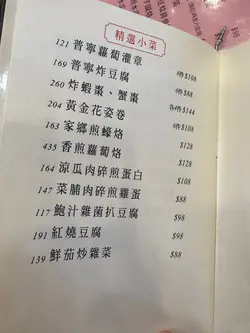 精選小菜
121 普寧蘿蔔灌章 6件$108
169 普寧炸豆腐 6件$88
260 炸蝦棗、蟹棗 各4件$144
204 黃金花姿卷 6件$108
163 家鄉煎蠔烙 $128
435 香煎蘿蔔烙 $128
164 涼瓜肉碎煎蛋白 $108
147 菜脯肉碎煎雞蛋 $88
117 鮑汁雜菌扒豆腐 $98
191 紅燒豆腐 $98
139 鮮茄炒雜菜 $88